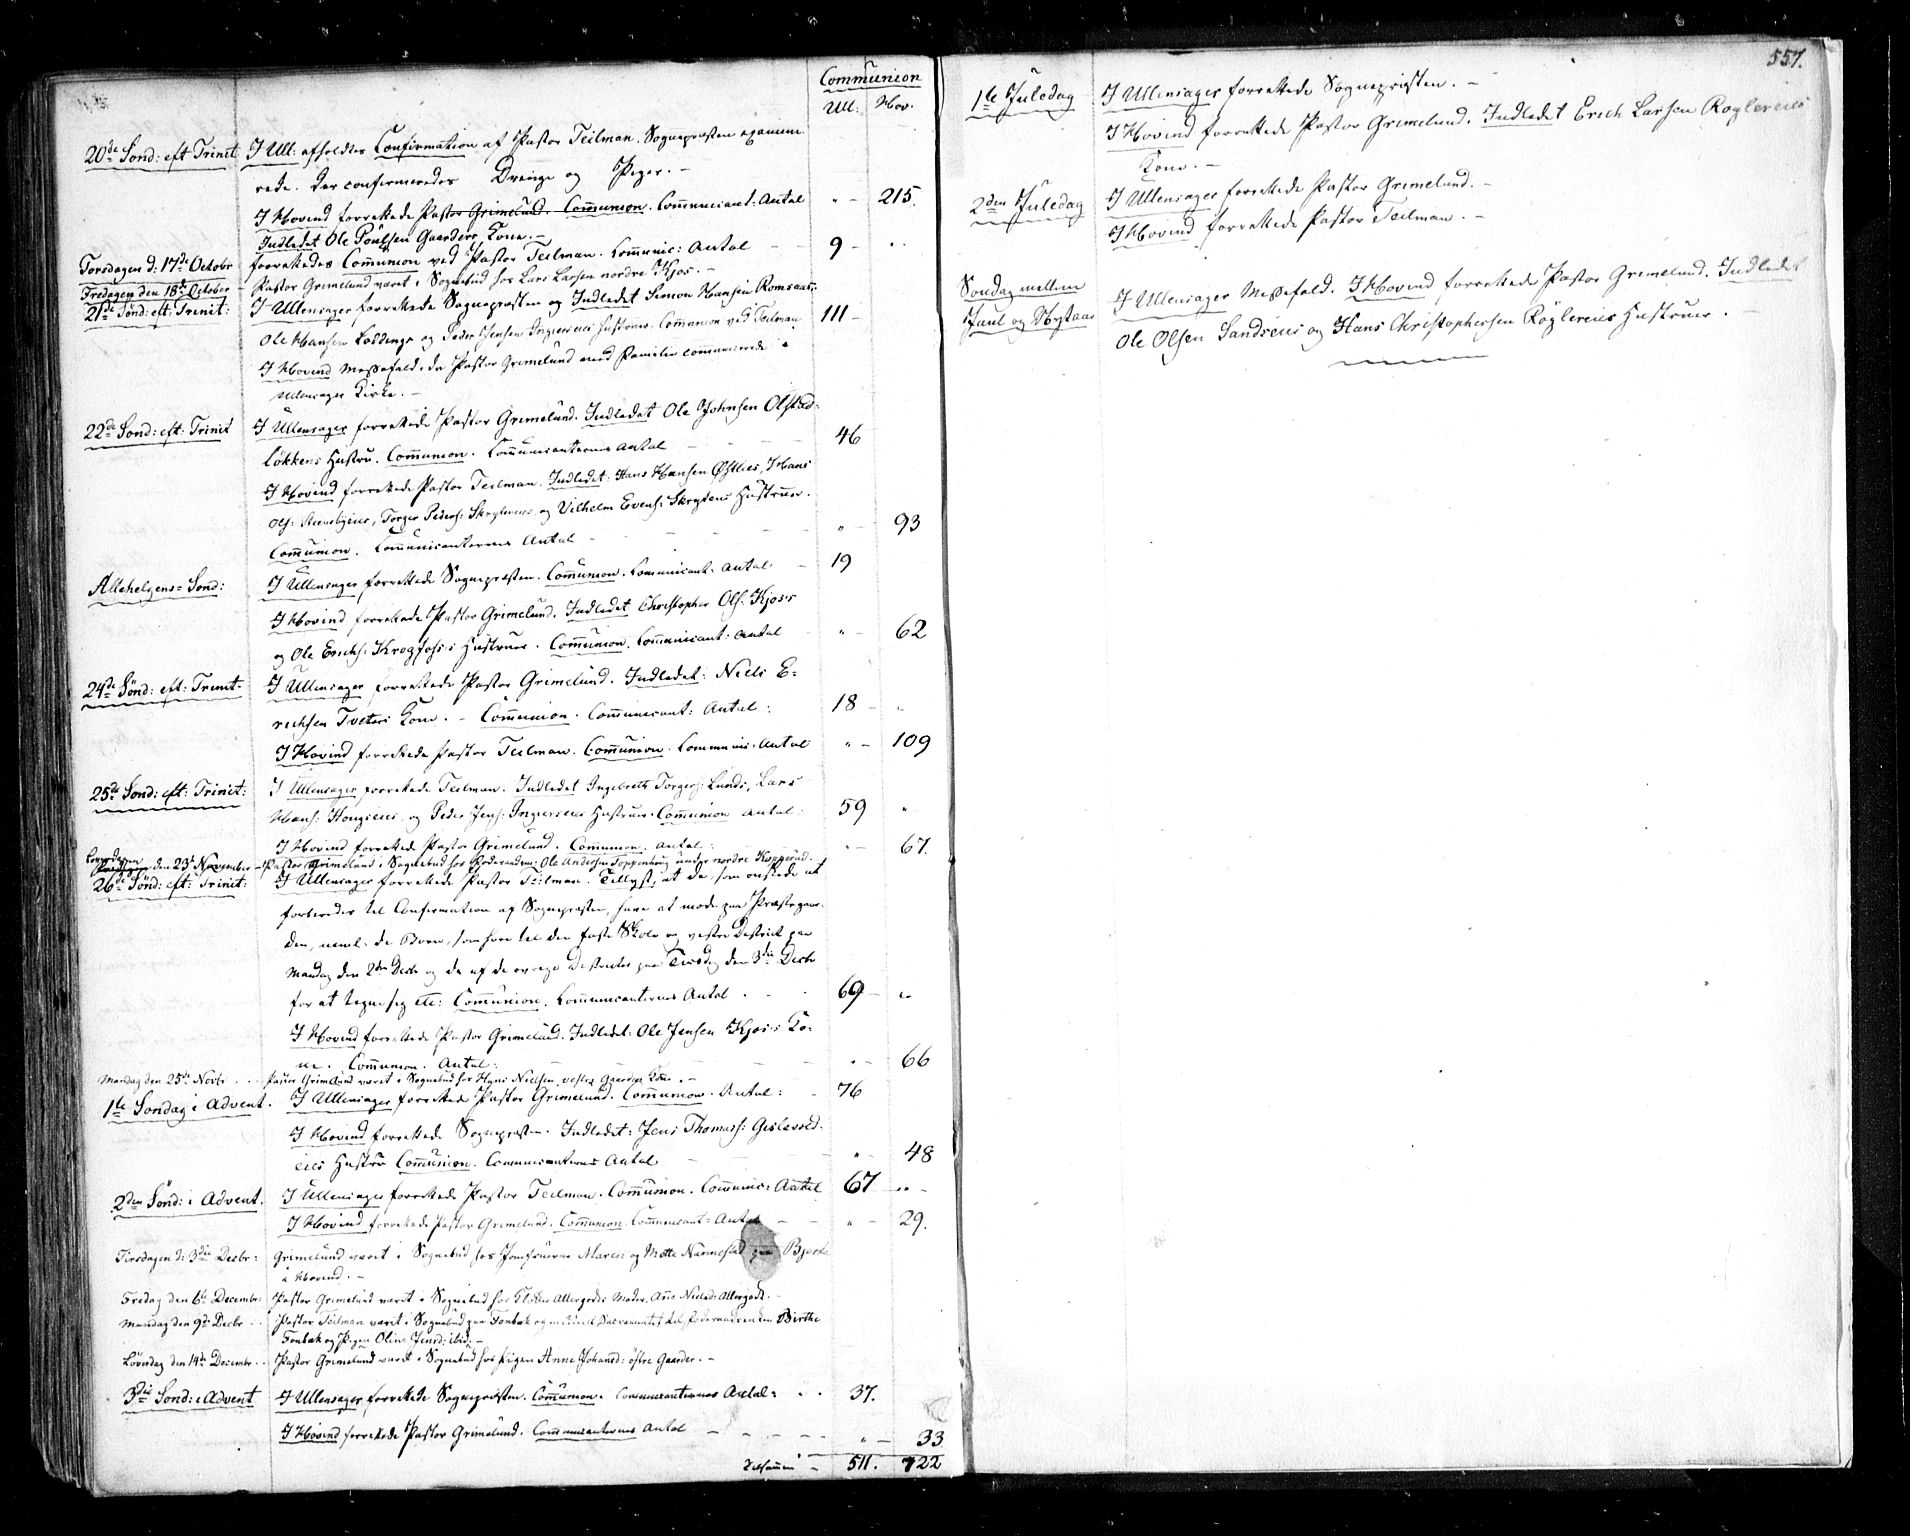 Communion
Ull: Hov.
20de Sönd: eft Trinit. I Ull: afholdtes Confirmation af Pastor Teilman. Sognepræsten examine
rede. Der confirmeredes Drenge og Piger. -
I Hovind forrettede Pastor Grimelund. Communion. Communicant: Antal " - 215.
Indledet Ole Poulsen Gaarders Kone. -
Torsdagen d: 17de Octobr forrettedes Communion ved Pastor Teilman. Communic: Antal - 9 -
Fredagen den 18de October Pastor Grimelund været i Sognebud hos Lars Larsen nordre Kjos. -
21de Sönd: eft: Trinit: I Ullensager forrettede Sognepræsten og Indledet Simon Hansen Romsaas,
Ole Hansen og Peder Jensen Hustruer. Communion ved Teilman 111 -
I Hovind Messefald, da Pastor Grimelund med Familie communicerede i
Ullensager Kirke. -
22de Sönd: eft: Trinit I Ullensager forrettede Pastor Grimelund. Indledet Ole Johnsen Olstad-
løkkens Hustru. Communion. Communicanternes Antal - 46
I Hovind forrettede Pastor Teilman. Indledet: Hans Hansen Østlies, Hans
Ols: Torger Peders: og Vilhelm Evens: Hustruer.
Communion. Communicanternes Antal - " - 93
Allehelgens-Sönd: I Ullensager forrettede Sognepræsten. Communion. Communicant: Antal - 19
I Hovind forrettede Pastor Grimelund. Indledet Christopher Ols: Kjos's
og Ole Erichs: Hustruer. Communion. Communicant: Antal " - 62
24de Sönd: eft: Trinit: I Ullensager forrettede Pastor Grimelund. Indledet: Niels E-
richsen Tveters Kone. - Communion. Communicant: Antal: 18 - "
I Hovind forrettede Pastor Teilman. Communion. Communic: Antal " - 109
25de Sönd: eft: Trinit: I Ullensager forrettede Teilman. Indledet Ingebreth Torgers: Lunds, Lars
Hans: og Peder Jens: Hustruer. Communion Antal: 59 "
I Hovind forrettede Pastor Grimelund. Communion. Antal: " - 67.
Löverdagen den 23de November Pastor Grimelund i Sognebud hos Föderaadsm: Ole Andersen under nordre
26de Sönd: eft: Trinit: I Ullensager forrettede Pastor Teilman. Tillyst, at de som ønskede at
forberedes til Confirmation af Sognepræsten, have at møde paa Præstegaar-
den, neml: de Børn, som høre til den faste Skole og vestre District paa
Mandag den 2den Decbr og de af de øvrige Districter paa Tirsdag den 3die Decbr
for at tegne sig etc: Communion. Communicanternes Antal . 69 - "
I Hovind forrettede Pastor Grimelund. Indledet: Ole Jensen Kjos's Ko-
ne. Communion. Antal: " - 66
Mandag den 25de Novbr . . Pastor Grimelund været i Sognebud hos Hans Nielsen, vestre Gaarder Kone. -
1te Söndag i Advent. I Ullensager forrettede Pastor Grimelund. Communion. Antal: 76
I Hovind forrettede Sognepræsten. Indledet: Jens Thomass: Gislevold-
eies Hustru Communion. Communicanternes Antal " - 48
2den Sönd: i Advent. I Ullensager forrettede Pastor Teilman. Communion. Communic: Antal 67 - " -
I Hovind forrettede Pastor Grimelund. Communion. Communicant: Antal " - 29.
Tirsdagen d: 3die Decbr: Grimelund været i Sognebud hos Jomfruerne Maren og Mette paa Bjerke
i Hovind. -
Fredag den 6te December Pastor Grimelund været i Sognebud hos Allergodts Moder, Anne Nielsd: Allergodt. -
Mandag den 9de Decbr . . Pastor Teilman været i Sognebud paa Fonbæk og meddeelt Sacramentet til Föderaadsenken Birthe
Fonbæk og Pigen Oline Jensd: ibid: -
Löverdag den 14de Decembr . . Pastor Grimelund været i Sognebud hos Pigen Anne Johansd: østre Gaarder. -
3die Sönd: i Advent I Ullensager forrettede Sognepræsten. Communion. Communicanternes Antal: . . 37.
I Hovind forrettede Pastor Grimelund. Communicanternes Antal - - " - 33
Tilsammen - 511. 722
557.
1te Juledag I Ullensager forrettede Sognepræsten. -
I Hovind forrettede Pastor Grimelund. Indledet Erich Larsen Røglereies
Kone. -
2den Juledag I Ullensager forrettede Pastor Grimelund. -
I Hovind forrettede Pastor Teilman. -
Söndag mellem I Ullensager Messefald. I Hovind forrettede Pastor Grimelund. Indledet
Juul og Nytaar Ole Olsen Sandseies og Hans Christophersen Røglereies Hustruer. -